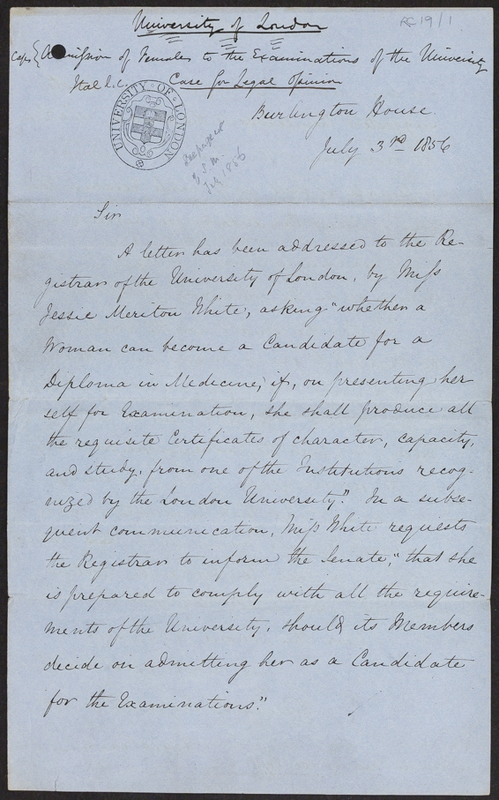 University of London
RC 19/1
Copy { Admission of Females to the Examinations of the University
Ital l.c. Case for Legal Opinion
UNIVERSITY OF LONDON
Burlington House
July 3rd 1856
July 1856
Sir
A letter has been addressed to the Re-
gistrar of the University of London, by Miss
Jessie Meriton White, asking "whether a
Woman can become a Candidate for a
Diploma in Medicine, if, on presenting her
self for Examination, she shall produce all
the requisite Certificates of character, capacity,
and study, from one of the Institutions recog-
nized by the London University." In a subse-
quent communication, Miss White requests
the Registrar to inform the Senate, "that she
is prepared to comply with all the require-
ments of the University, should its Members
decide on admitting her as a Candidate
for the Examinations."